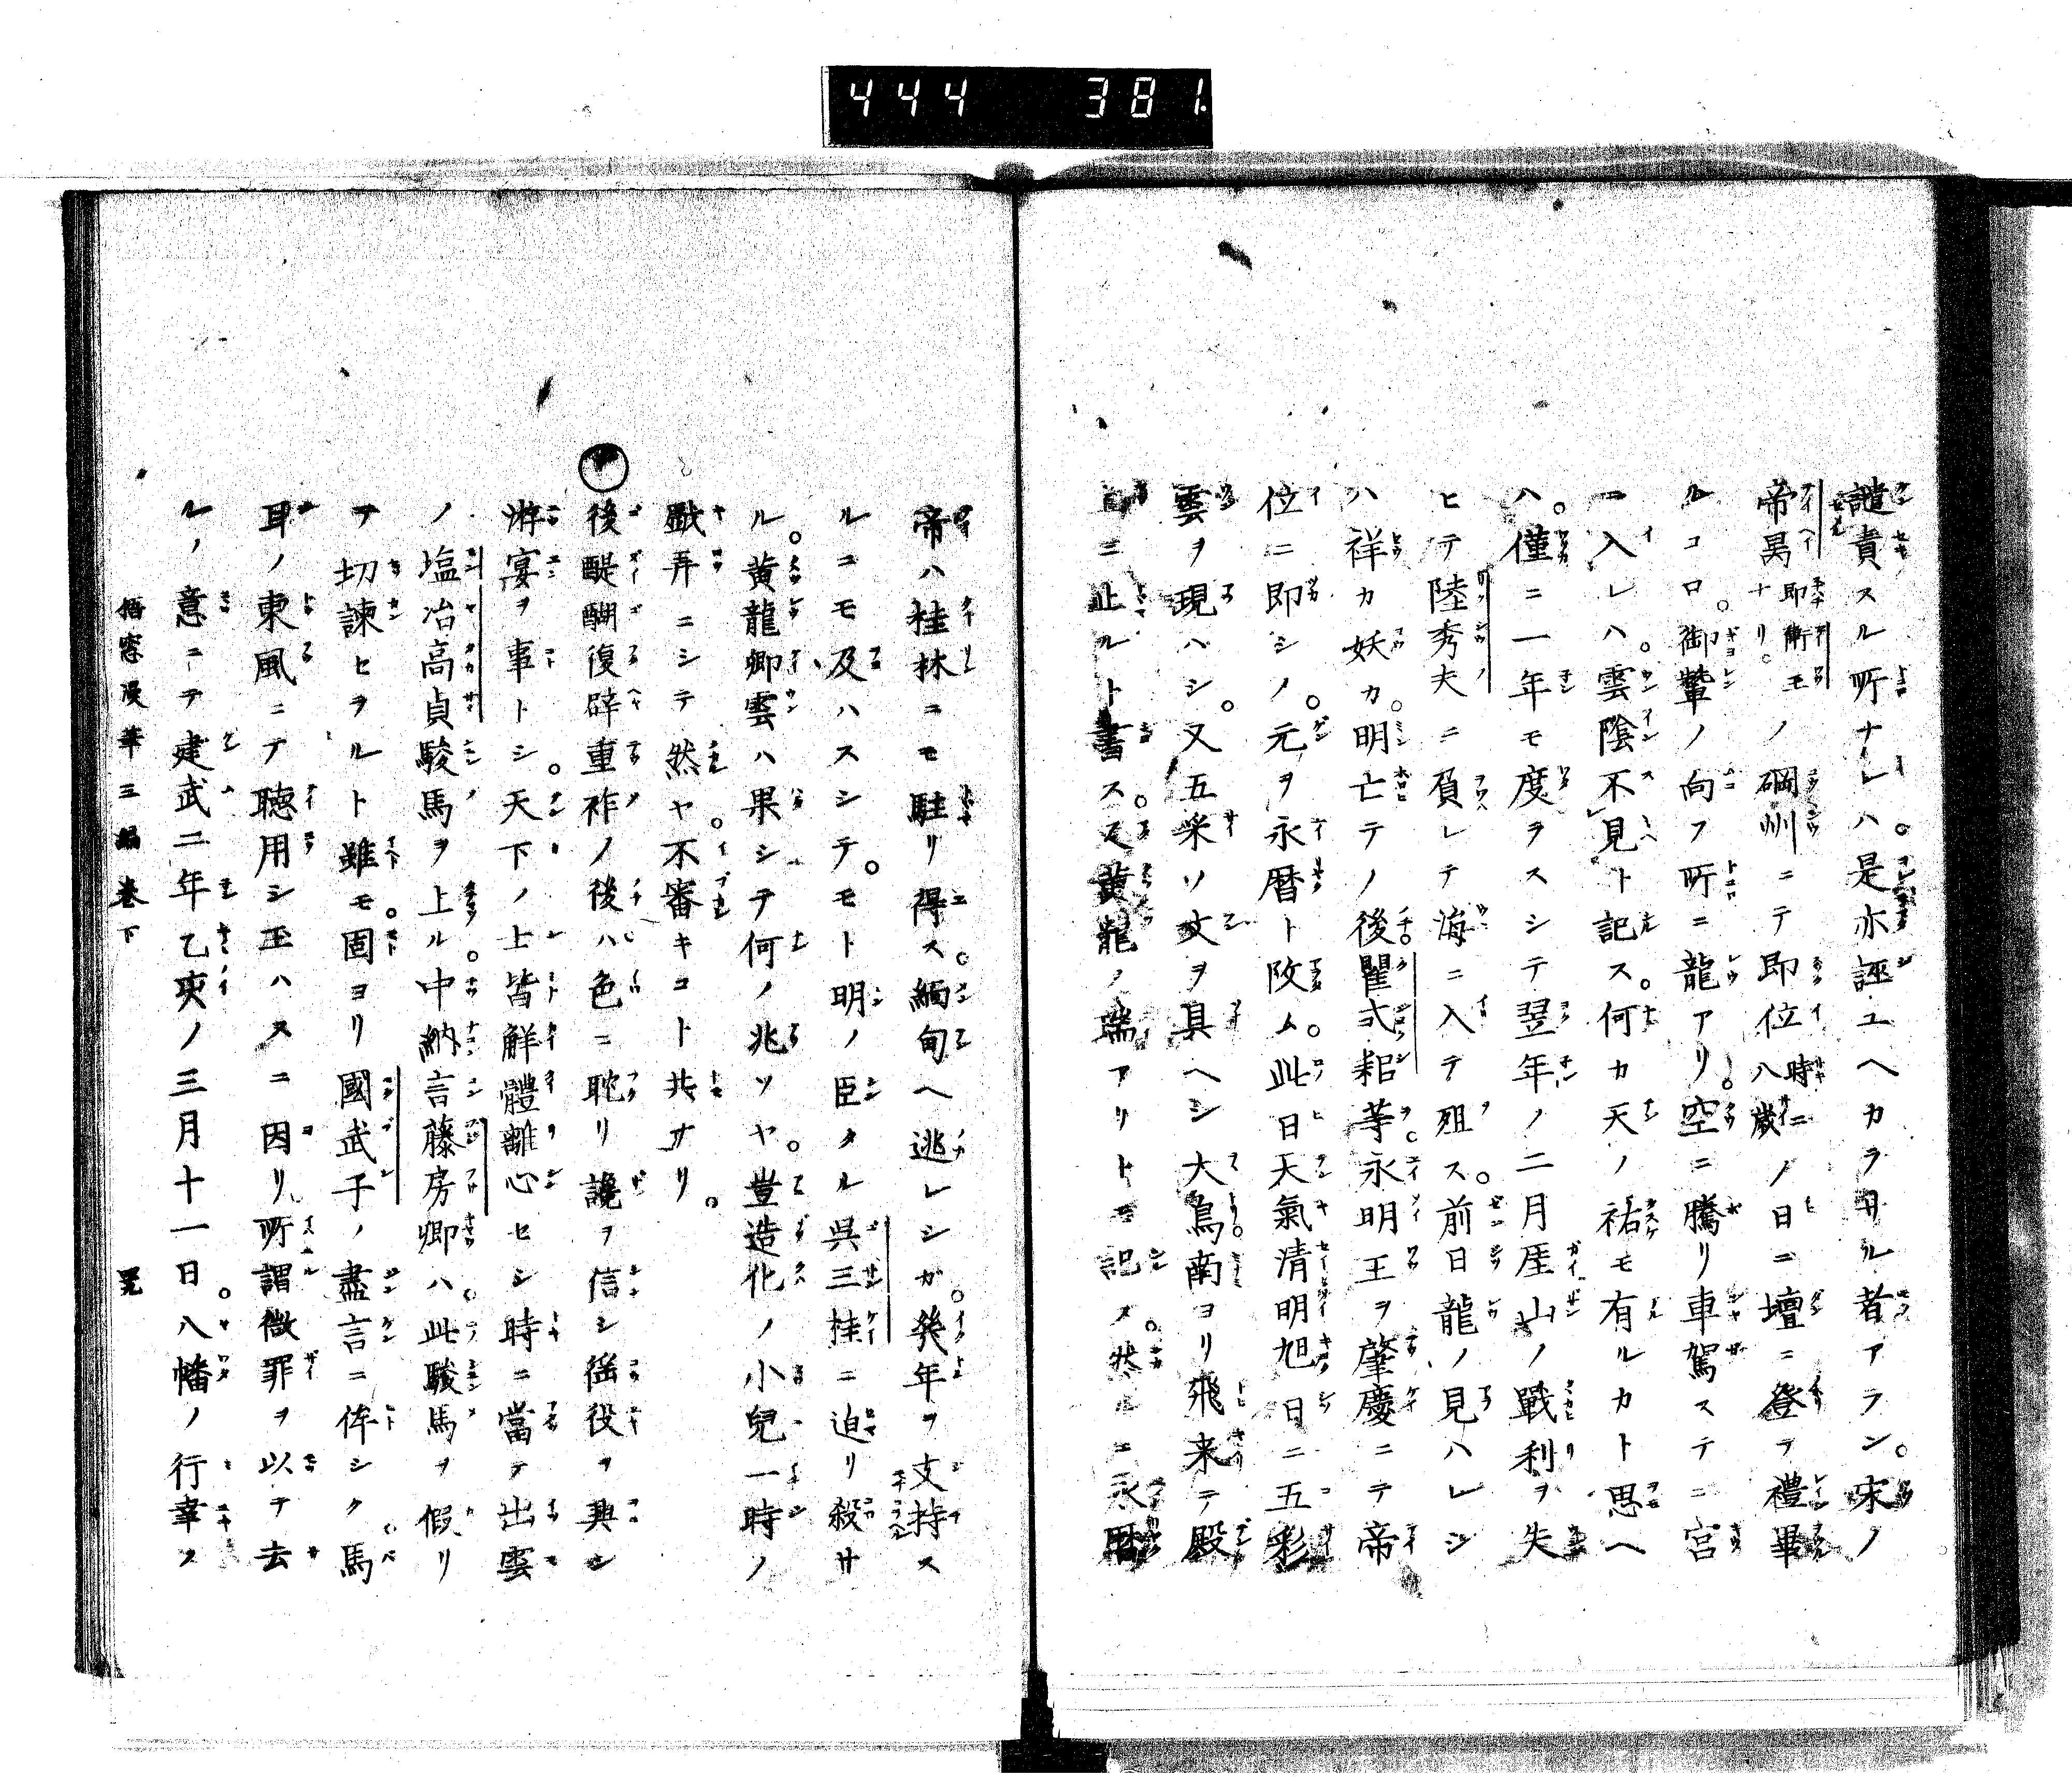 444 381
譴責スル所ナレハ。是亦誣ユヘカラサル者アラン。宋ノ
帝昺即衛王ナリ。ノ碙州ニテ即位時ニ八歳ノ日ニ壇ニ登テ禮畢
ルコロ。御輦ノ向フ所ニ龍アリ。空ニ騰リ車駕ステニ宮
ニ入レハ。雲陰不見ト記ス。何カ天ノ祐モ有ルカト思ヘ
ハ。僅ニ一年モ度ラスシテ翌年ノ二月厓山ノ戰利ヲ失
ヒテ陸秀夫ニ負レテ海ニ入テ殂ス。前日龍ノ見ハレシ
ハ祥カ妖カ。明亡テノ後瞿式耜等。永明王ヲ肇慶ニテ帝
位ニ即シノ。元ヲ永暦ト改ム。此日天氣清明旭日ニ五彩
雲ヲ現ハシ。又五采ソ文ヲ具ヘシ大鳥。南ヨリ飛来テ殿
ニ止ルト書ス。又黄龍ノ瑞アリトモ記ス。然ルニ永暦
帝ハ桂林ニモ駐リ得ス。緬甸ヘ逃レシガ。幾年ヲ支持ス
ルニモ及ハスシテ。モト明ノ臣タル呉三桂ニ迫リ殺サ
ル。黄龍卿雲ハ果シテ何ノ兆ソヤ。豈造化ノ小兒一時ノ
戯弄ニシテ然ヤ。不審キコト共ナリ。
後醍醐復辟重祚ノ後ハ色ニ耽リ讒ヲ信シ徭役ヲ興シ
游宴ヲ事トシ。天下ノ士皆解體離心セシ時ニ當テ出雲
ノ塩冶高貞駿馬ヲ上ル。中納言藤房卿ハ。此駿馬ヲ假リ
テ切諫ヒヲルト雖モ。固ヨリ國武子ノ盡言ニ侔シク。馬
耳ノ東風ニテ聴用シ玉ハスニ因リ。所謂微罪ヲ以テ去
ルノ意ニテ建武二年乙亥ノ三月十一日。八幡ノ行幸ス
梧窓漫筆三編 巻下